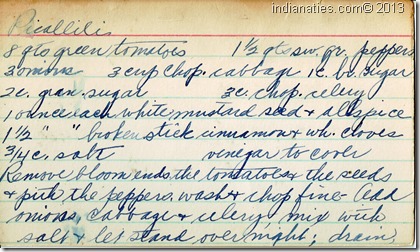 indianaties.com© 2013
Picallilis
8 qts green tomatoes 1 1/2 qts sw. gr. peppers
3 onions 3 cup chop. cabbage 1 c. br. sugar
2 c. gran. sugar 3 c. chop. celery
1 ounce each white mustard seed & allspice
1 1/2 " " broken stick cinnamon & wh. cloves
3/4 c. salt vinegar to cover
Remove bloom ends, the tomatoes & the seeds
& pith the peppers, wash & chop fine - Add
onions, cabbage & celery mix with
salt & let stand overnight; drain